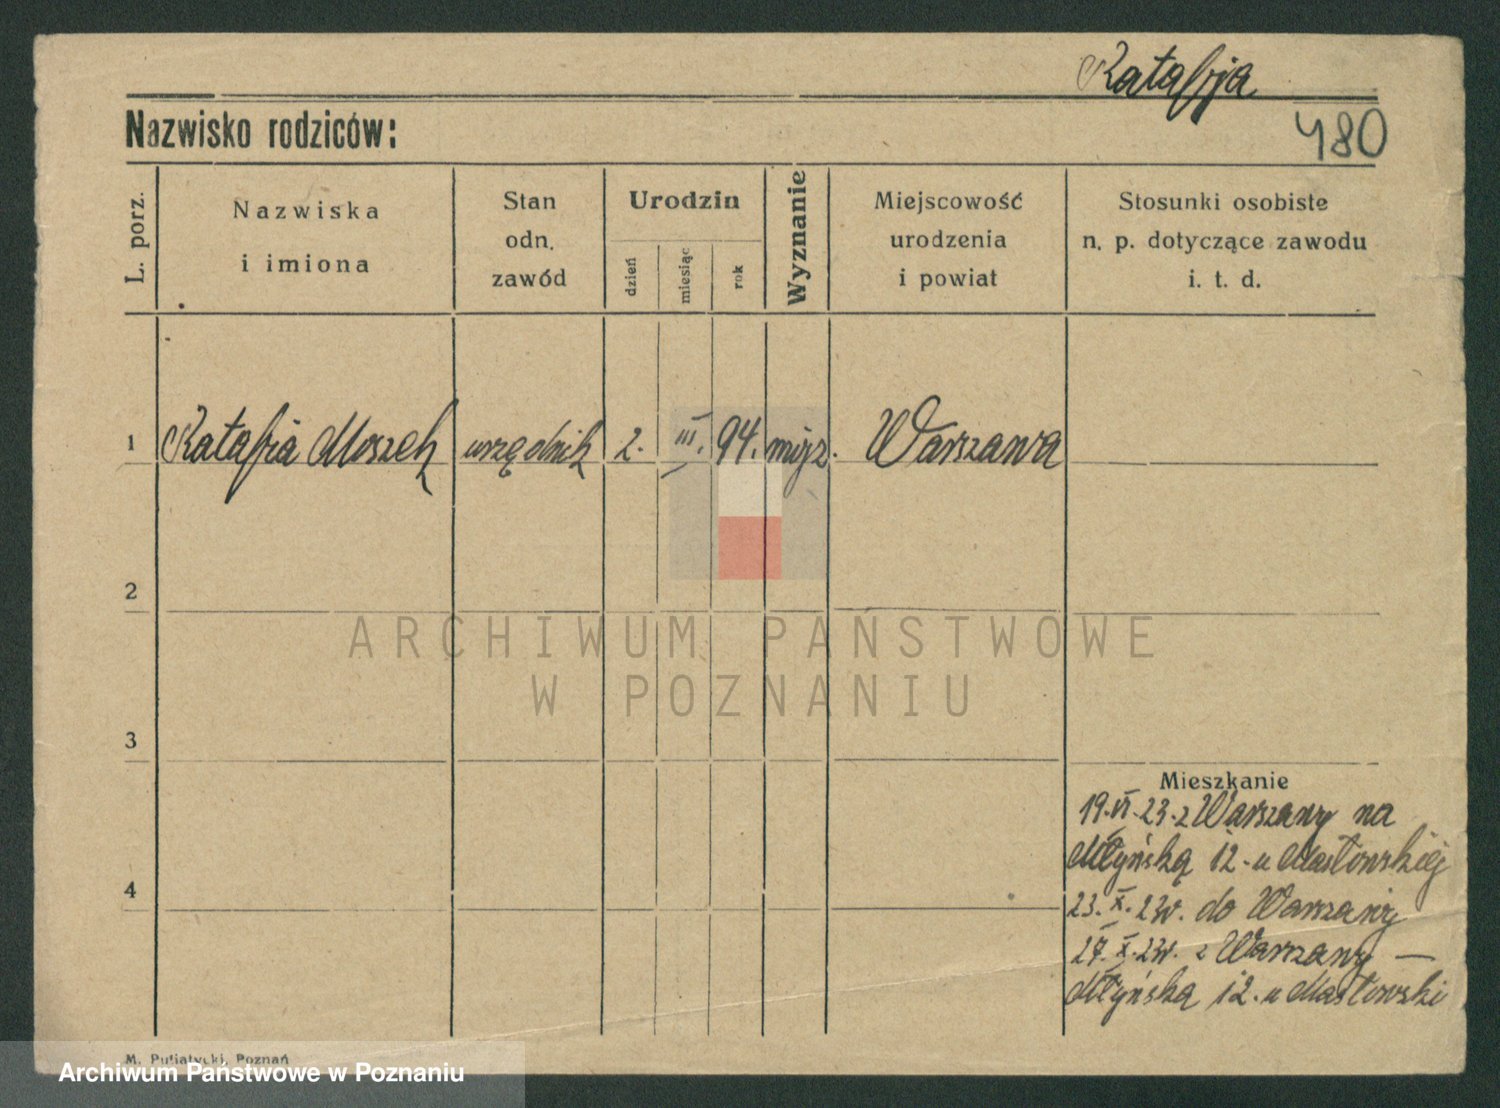 Ratafja
Nazwisko rodziców:
480
L. porz.
Nazwiska
i imiona
Stan
odn.
zawód
Urodzin
dzień
miesiąc
rok
Wyznanie
Miejscowość
urodzenia
i powiat
Stosunki osobiste
n. p. dotyczące zawodu
i. t. d.
1 Ratafia Moszek urzędnik 2. III. 94. mojż. Warszawa
2
3
Mieszkanie
19.VI.23. z Warszawy na
Młyńską 12. u Masłowskiej
4
23. X. 24. do Warszawy
27. X. 24. z Warszawy —
Młyńską 12. u Masłowski
M. Putiatycki, Poznań
ARCHIWUM PAŃSTWOWE
W POZNANIU
Archiwum Państwowe w Poznaniu